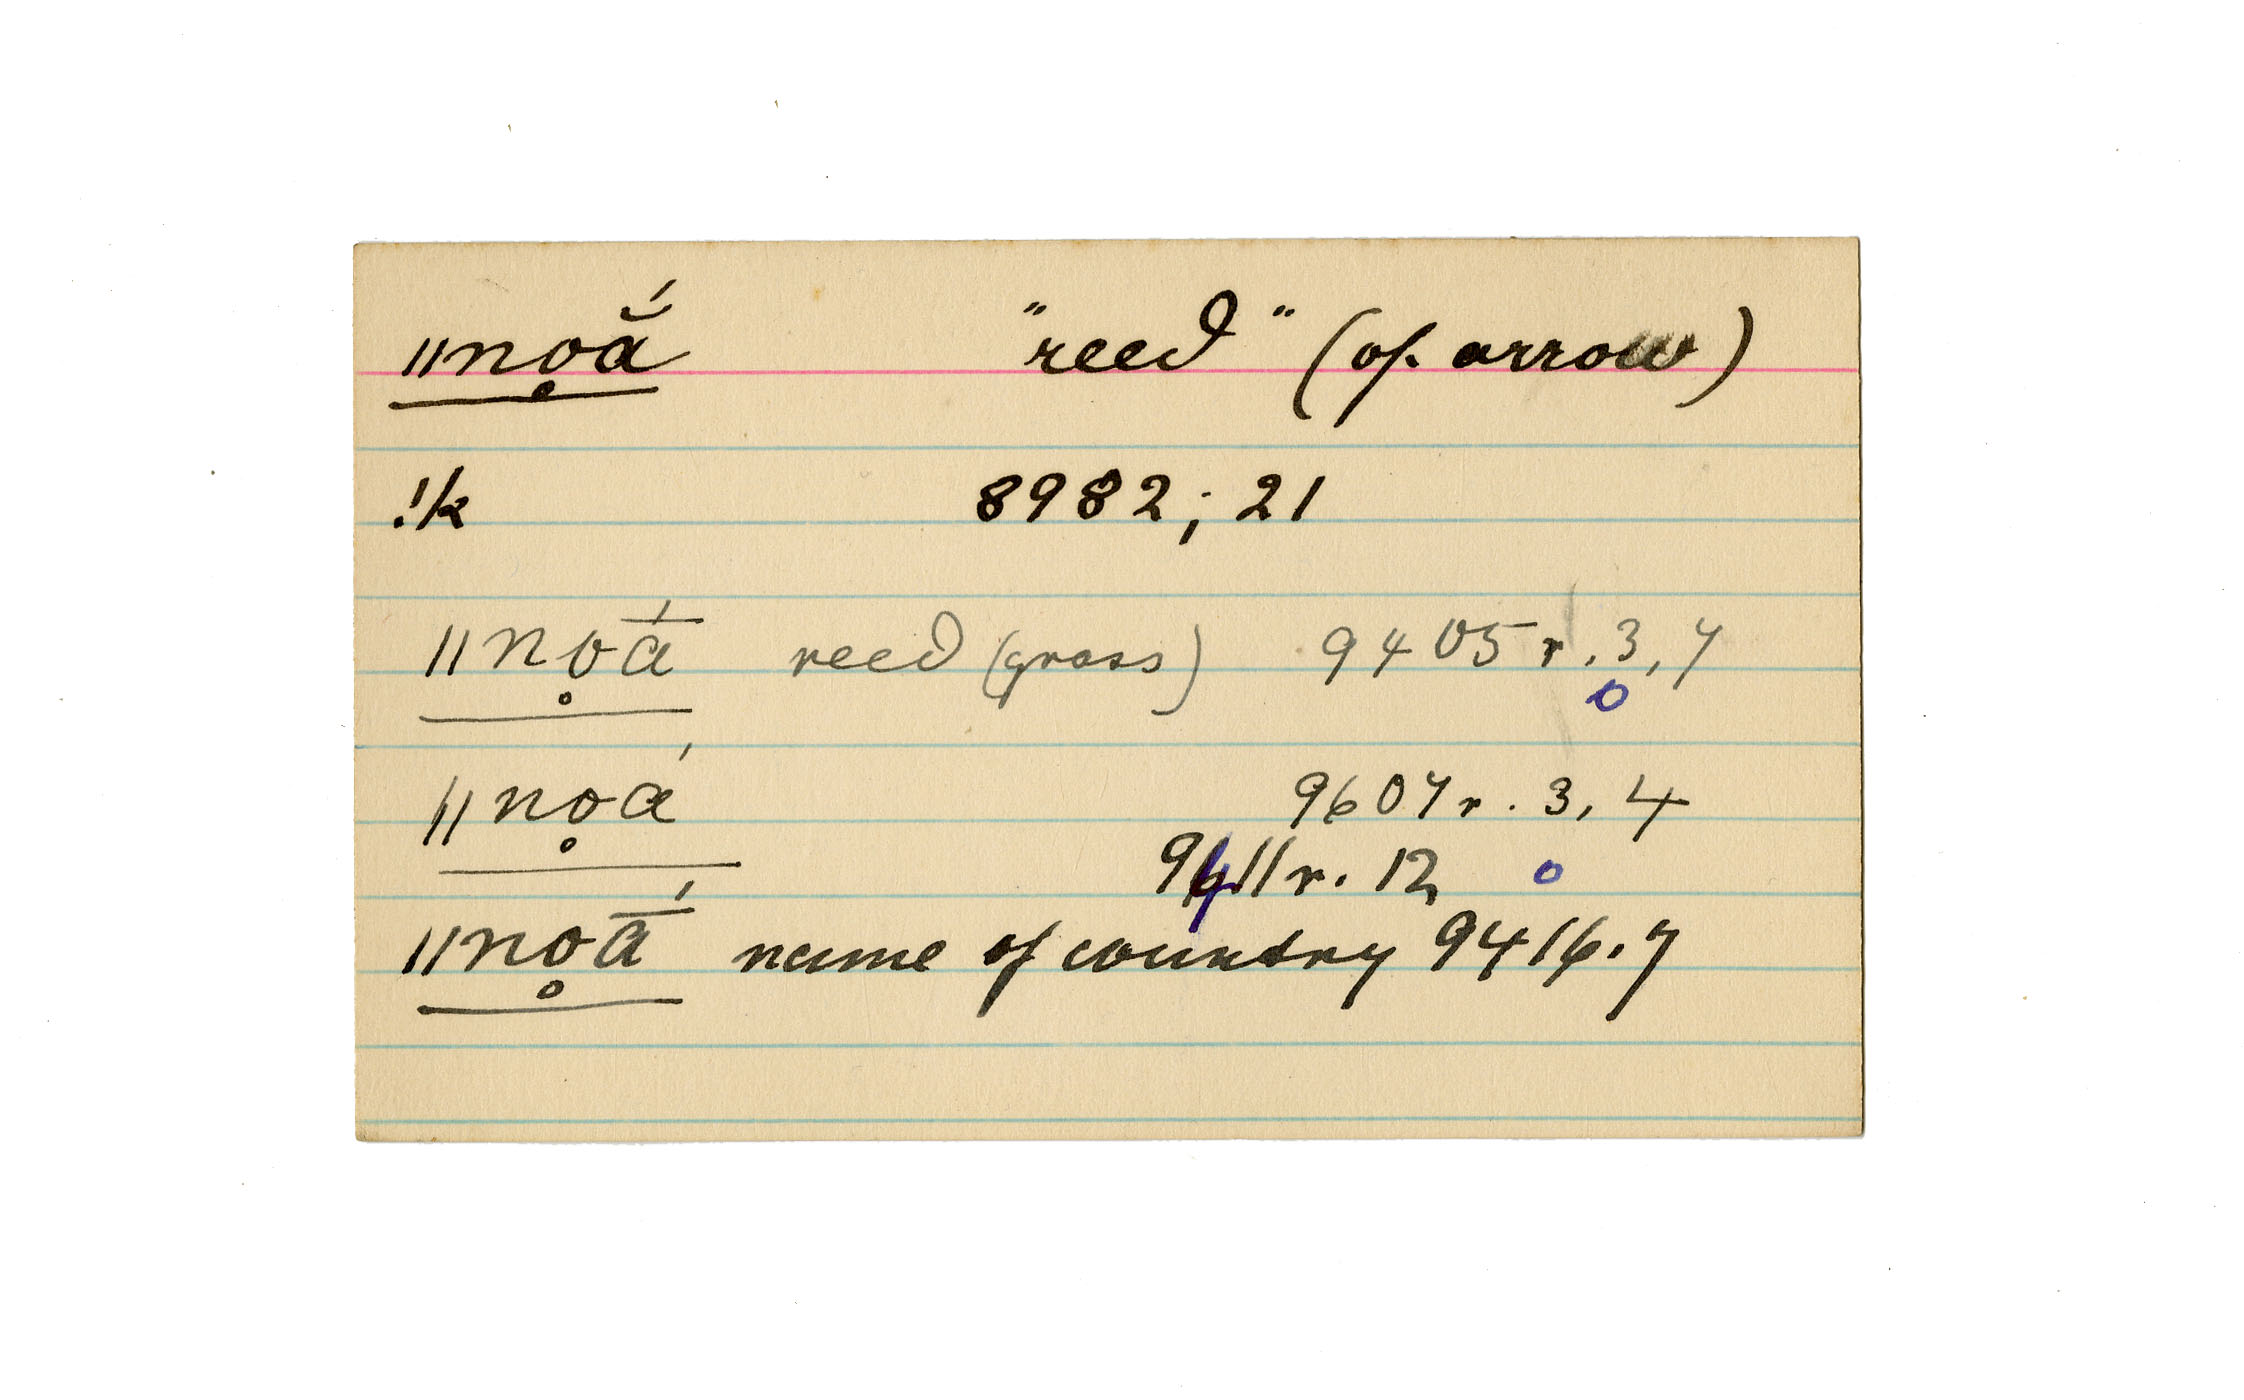 ǁno̥ắ "reed" (of arrow)
!k 8982; 21
ǁno̥ā́ reed (grass) 9405 r. 3, 7
o
ǁno̥á 9607 r. 3, 4
9411 r. 12 o
ǁno̥ā́ name of country 9416.7